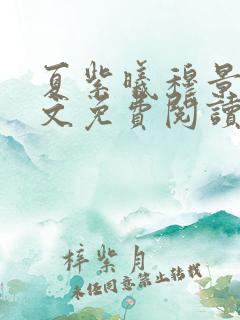 夏紫曦穆景
文免費閱讀
梓紫月
未经同意禁止转载